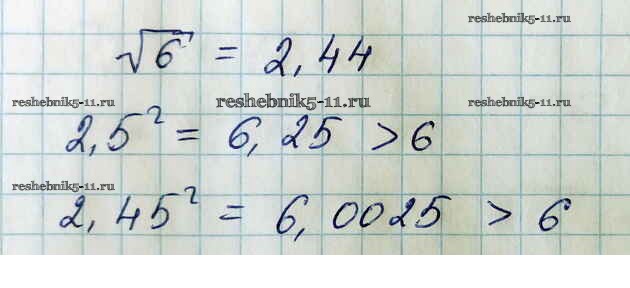 reshebnik5-11.ru
√6 = 2,44
reshebnik5-11.ru reshebnik5-11.ru reshebnik5-11.ru
2,5² = 6,25 > 6
reshebnik5-11.ru
2,45² = 6,0025 > 6